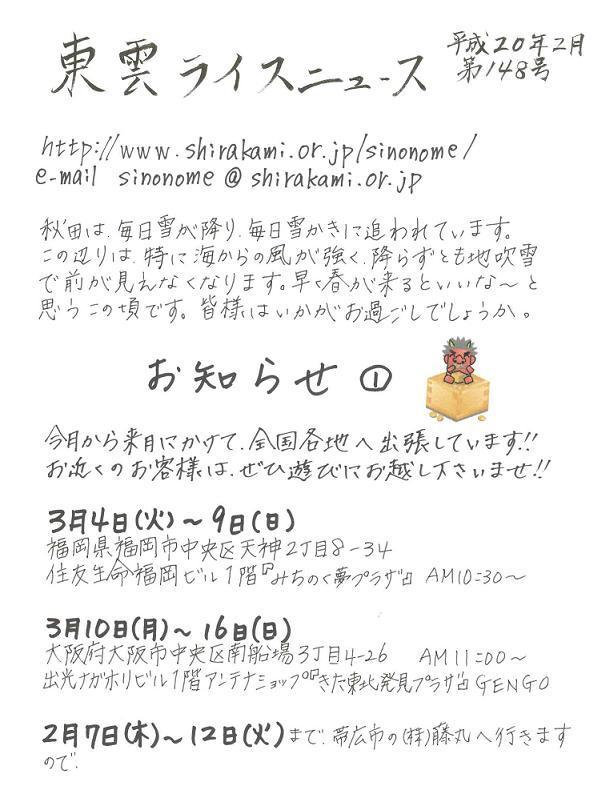 東雲ライスニュース
平成20年2月
第148号
http://www.shirakami.or.jp/sinonome/
e-mail sinonome@shirakami.or.jp
秋田は、毎日雪が降り、毎日雪かきに追われています。
この辺りは、特に海からの風が強く、降らずとも地吹雪
で前が見えなくなります。早く春が来るといいな～と
思うこの頃です。皆様はいかがお過ごしでしょうか。
お知らせ①
今月から来月にかけて、全国各地へ出張しています!!
お近くのお客様は、ぜひ遊びにお越し下さいませ!!
3月4日(火)～9日(日)
福岡県福岡市中央区天神2丁目8-34
住友生命福岡ビル1階『みちのく夢プラザ』 AM10:30～
3月10日(月)～16日(日)
大阪府大阪市中央区南船場3丁目4-26 AM11:00～
出光ナガホリビル1階アンテナショップ『きた東北発見プラザ』 GENGO
2月7日(木)～12日(火)まで、帯広市の(株)藤丸へ行きます
ので、